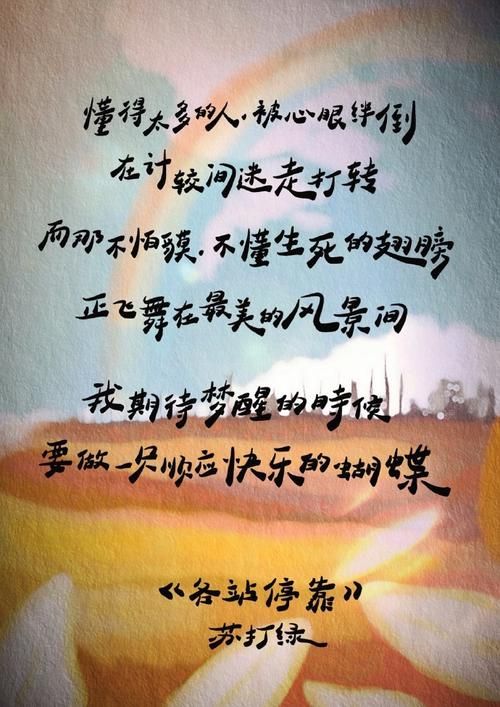 懂得太多的人，被心眼绊倒
在计较间迷走打转
而那不怕貘，不懂生死的翅膀
正飞舞在最美的风景间
我期待梦醒的時候
要做一只顺应快乐的蝴蝶
《各站停靠》
苏打绿